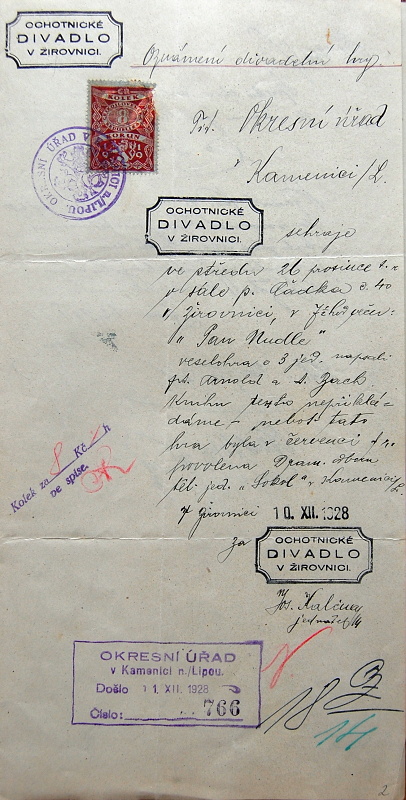 OCHOTNICKÉ
DIVADLO
V ŽIROVNICI.
Oznámení divadelní hry.
KOLEK
8
KORUN
Okresní úřad
v Kamenici /L.
OKRESNÍ ÚŘAD V n/LIPOU.
OCHOTNICKÉ
DIVADLO
V ŽIROVNICI.
sehraje
ve středu 26 prosince t. r.
v sále p. Čádka č. 40
v Žirovnici, v
"Pan Nudle"
veselohra o 3 jed. napsali
Arnold a Bach.
Knihu nepřiklá-
dáme - neboť tato
hra byla v červenci t. r.
povolena Dram. odboru
těl. jed. "Sokol" v Kamenici /L.
Kolek za 8 Kč h
ve spise.
V Žirovnici 10. XII. 1928
Za
OCHOTNICKÉ
DIVADLO
V ŽIROVNICI.
Jos.
jednatel
OKRESNÍ ÚŘAD
v Kamenici n./Lipou.
Došlo 11. XII. 1928
Číslo: 766
18
14
2